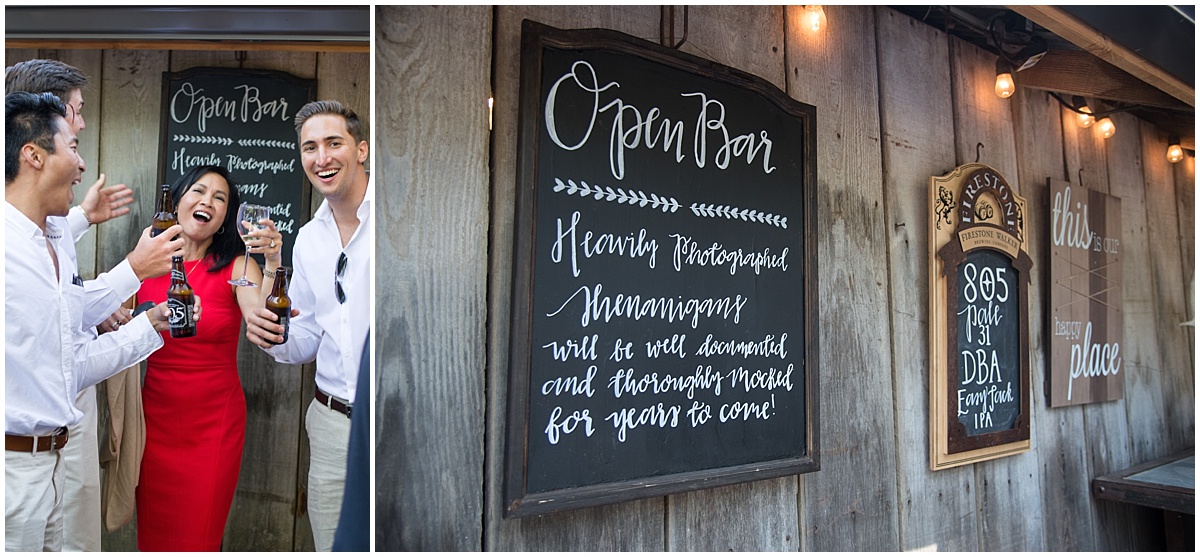 Open Bar
Heavily Photographed
805
Open Bar
Heavily Photographed
Shenanigans
will be well documented
and thoroughly Mocked
for years to come!
FIRESTONE
FIRESTONE WALKER
BREWING COMPANY
805
pale
31
DBA
Easy Jack
IPA
this is our
happy
place